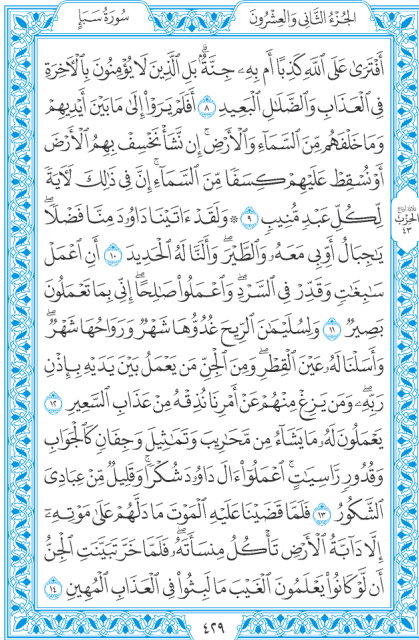 الجُزْءُ الثَّانِي وَالعِشْرُونَ
سُورَةُ سَبَإٍ
أَفْتَرَىٰ عَلَى ٱللَّهِ كَذِبًا أَم بِهِۦ جِنَّةٌۢۗ بَلِ ٱلَّذِينَ لَا يُؤْمِنُونَ بِٱلْأَخِرَةِ
فِى ٱلْعَذَابِ وَٱلضَّلَـٰلِ ٱلْبَعِيدِ ٨ أَفَلَمْ يَرَوْا۟ إِلَىٰ مَا بَيْنَ أَيْدِيهِمْ
وَمَا خَلْفَهُم مِّنَ ٱلسَّمَآءِ وَٱلْأَرْضِۚ إِن نَّشَأْ نَخْسِفْ بِهِمُ ٱلْأَرْضَ
أَوْ نُسْقِطْ عَلَيْهِمْ كِسَفًا مِّنَ ٱلسَّمَآءِۚ إِنَّ فِى ذَٰلِكَ لَأَيَةً
لِّكُلِّ عَبْدٍ مُّنِيبٍ ٩ ۞ وَلَقَدْ ءَاتَيْنَا دَاوُۥدَ مِنَّا فَضْلًاۖ
يَـٰجِبَالُ أَوِّبِى مَعَهُۥ وَٱلطَّيْرَۖ وَأَلَنَّا لَهُ ٱلْحَدِيدَ ١٠ أَنِ ٱعْمَلْ
سَـٰبِغَـٰتٍ وَقَدِّرْ فِى ٱلسَّرْدِۖ وَٱعْمَلُوا۟ صَـٰلِحًاۖ إِنِّى بِمَا تَعْمَلُونَ
بَصِيرٌ ١١ وَلِسُلَيْمَـٰنَ ٱلرِّيحَ غُدُوُّهَا شَهْرٌ وَرَوَاحُهَا شَهْرٌۖ
وَأَسَلْنَا لَهُۥ عَيْنَ ٱلْقِطْرِۖ وَمِنَ ٱلْجِنِّ مَن يَعْمَلُ بَيْنَ يَدَيْهِ بِإِذْنِ
رَبِّهِۦۖ وَمَن يَزِغْ مِنْهُمْ عَنْ أَمْرِنَا نُذِقْهُ مِنْ عَذَابِ ٱلسَّعِيرِ ١٢
يَعْمَلُونَ لَهُۥ مَا يَشَآءُ مِن مَّحَـٰرِيبَ وَتَمَـٰثِيلَ وَجِفَانٍ كَٱلْجَوَابِ
وَقُدُورٍ رَّاسِيَـٰتٍۚ ٱعْمَلُوٓا۟ ءَالَ دَاوُۥدَ شُكْرًاۚ وَقَلِيلٌ مِّنْ عِبَادِىَ
ٱلشَّكُورُ ١٣ فَلَمَّا قَضَيْنَا عَلَيْهِ ٱلْمَوْتَ مَا دَلَّهُمْ عَلَىٰ مَوْتِهِۦٓ
إِلَّا دَآبَّةُ ٱلْأَرْضِ تَأْكُلُ مِنسَأَتَهُۥۖ فَلَمَّا خَرَّ تَبَيَّنَتِ ٱلْجِنُّ
أَن لَّوْ كَانُوا۟ يَعْلَمُونَ ٱلْغَيْبَ مَا لَبِثُوا۟ فِى ٱلْعَذَابِ ٱلْمُهِينِ ١٤
ثلاثة أرباع
الحِزْب
٤٣
٤٢٩